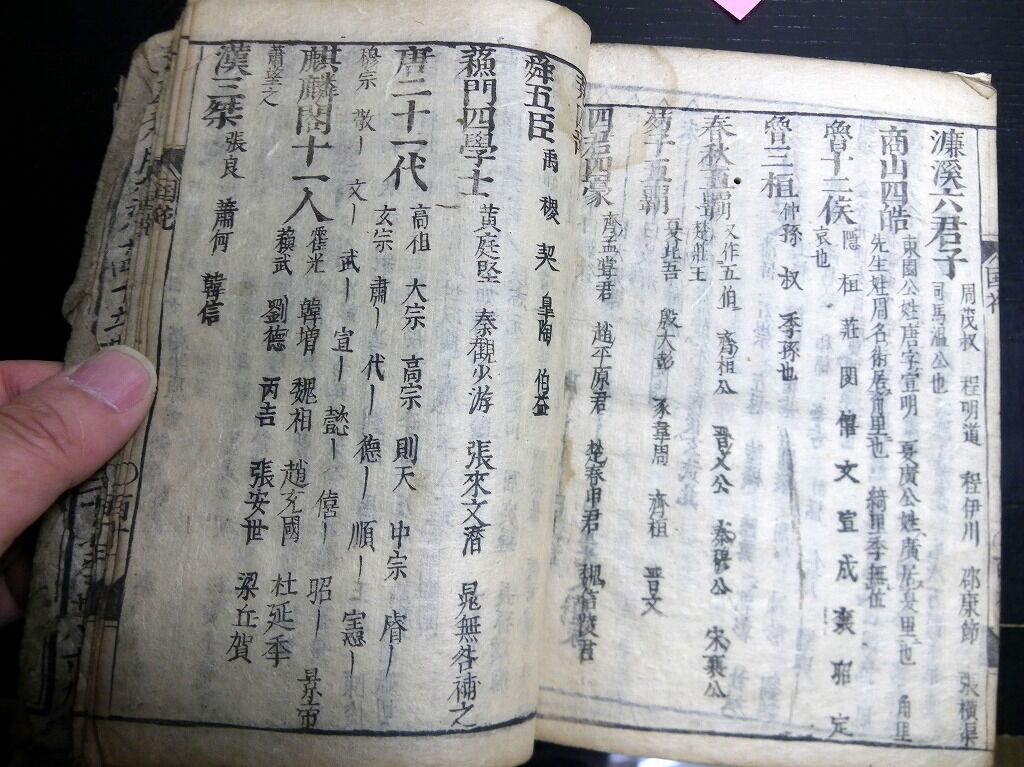 濂溪六君子 周茂叔 程明道 程伊川 邵康節 張橫渠
司馬溫公也
商山四皓 東園公姓唐字宣明 夏廣公姓廣居夏里也 角里
先生姓周名術居角里也 綺里季無位
魯十二侯 隱 桓 莊 閔 僖 文 宣 成 襄 昭 定
哀也
魯三桓 仲孫 叔 季孫也
春秋五覇 又作五伯 齊桓公 晋文公 秦穆公 宋襄公
楚莊王
荀子五覇 夏昆吾 殷大彭 豕韋周 齊桓 晋文
四君四豪 齊孟嘗君 趙平原君 楚春申君 魏信陵君
舜五臣 禹 稷 契 皐陶 伯益
蘓門四學士 黃庭堅 秦觀少游 張來文潛 晁無咎補之
唐二十一代 高祖 大宗 高宗 則天 中宗 睿ー
玄宗 肅ー 代ー 德ー 順ー 憲ー
穆宗 敬ー 文ー 武ー 宣ー 懿ー 僖ー 昭ー 景帝
麒麟閣十一人 霍光 韓增 魏相 趙充國 杜延季
蘇武 劉德 丙吉 張安世 梁丘賀
蕭望之
漢三桀 張良 蕭何 韓信